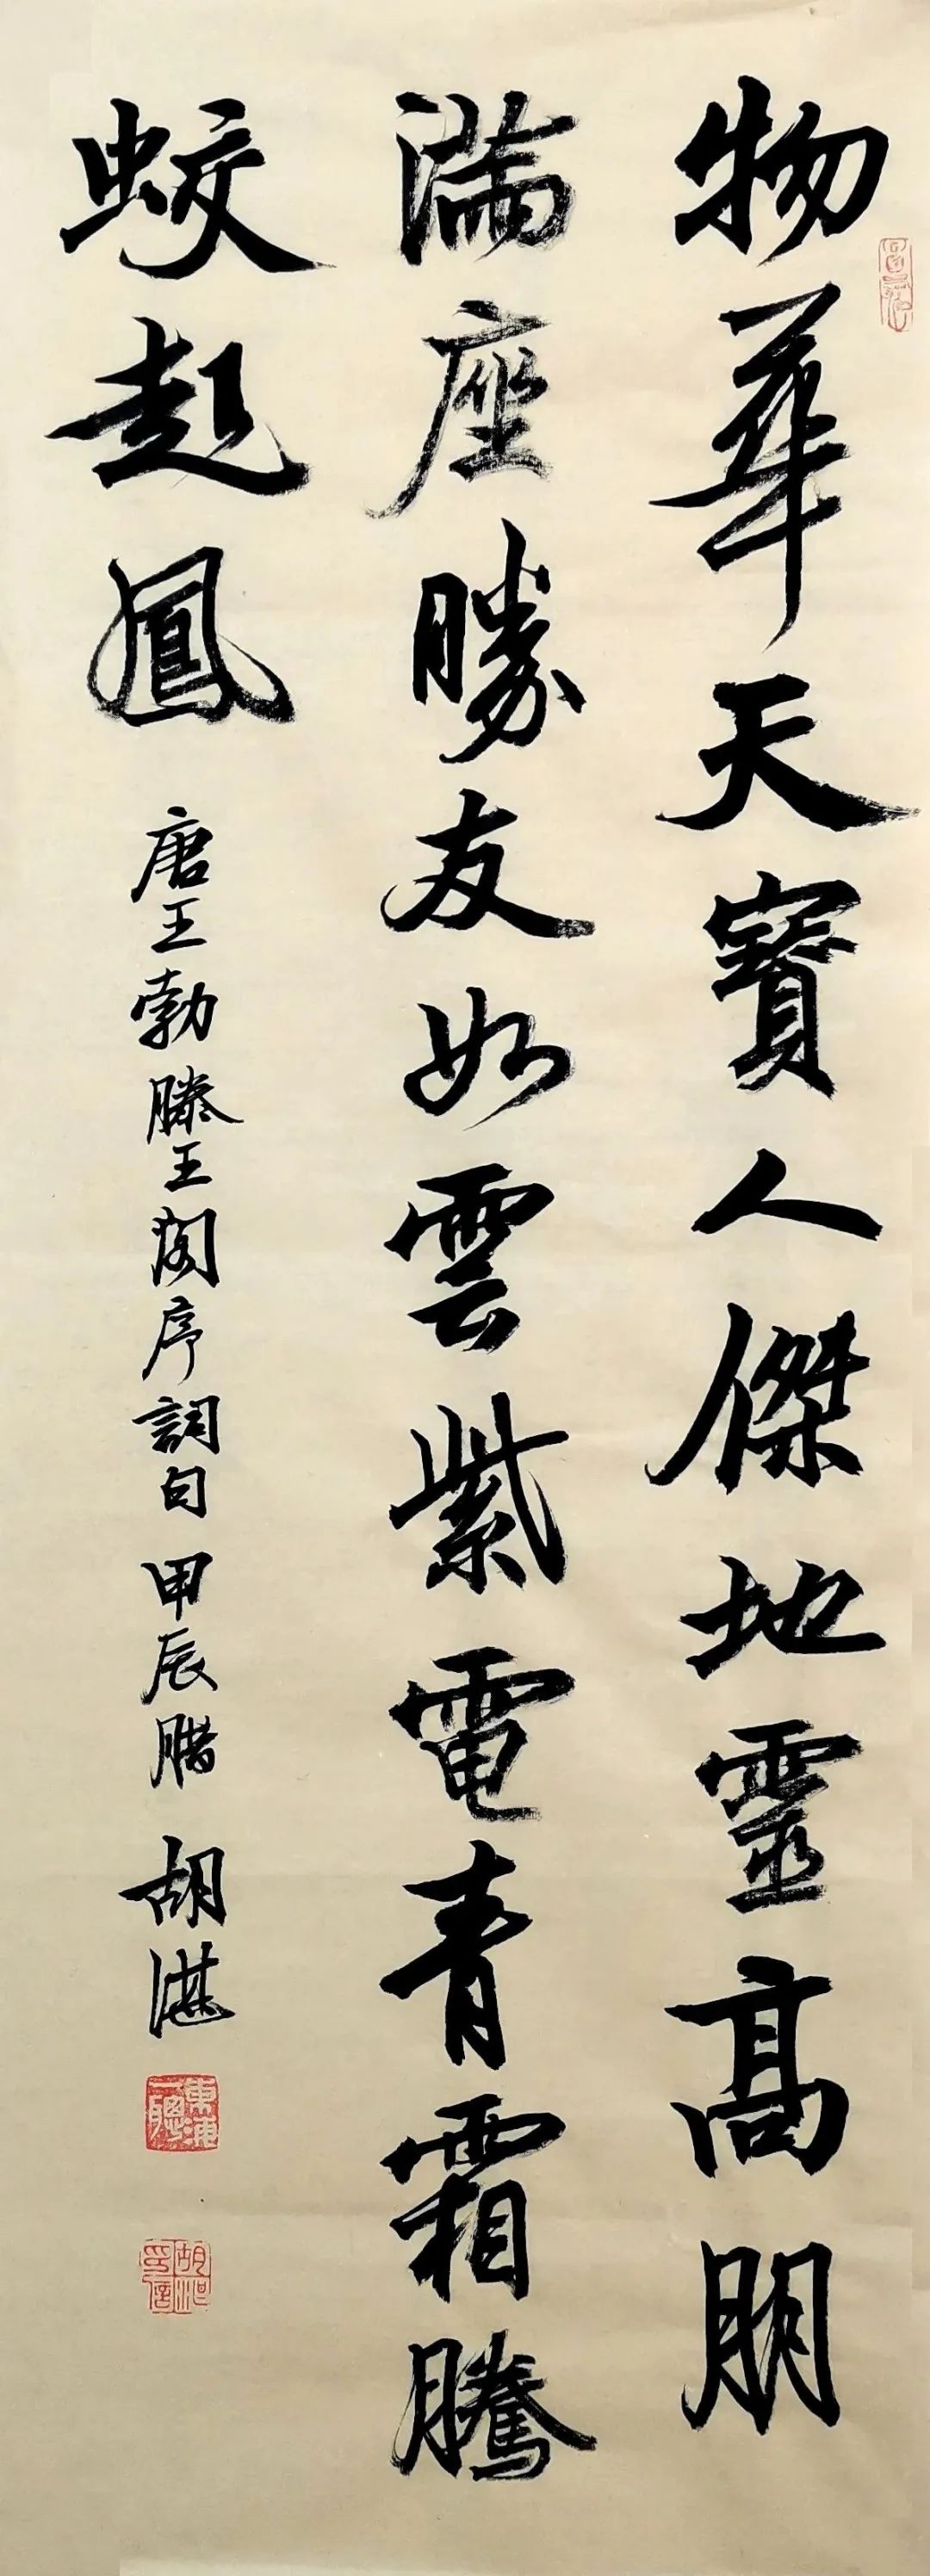 物華天寳人傑地靈高朋
滿座勝友如雲紫電青霜騰
蛟起鳳
唐王勃滕王閣序詞句 甲辰腊 胡湛